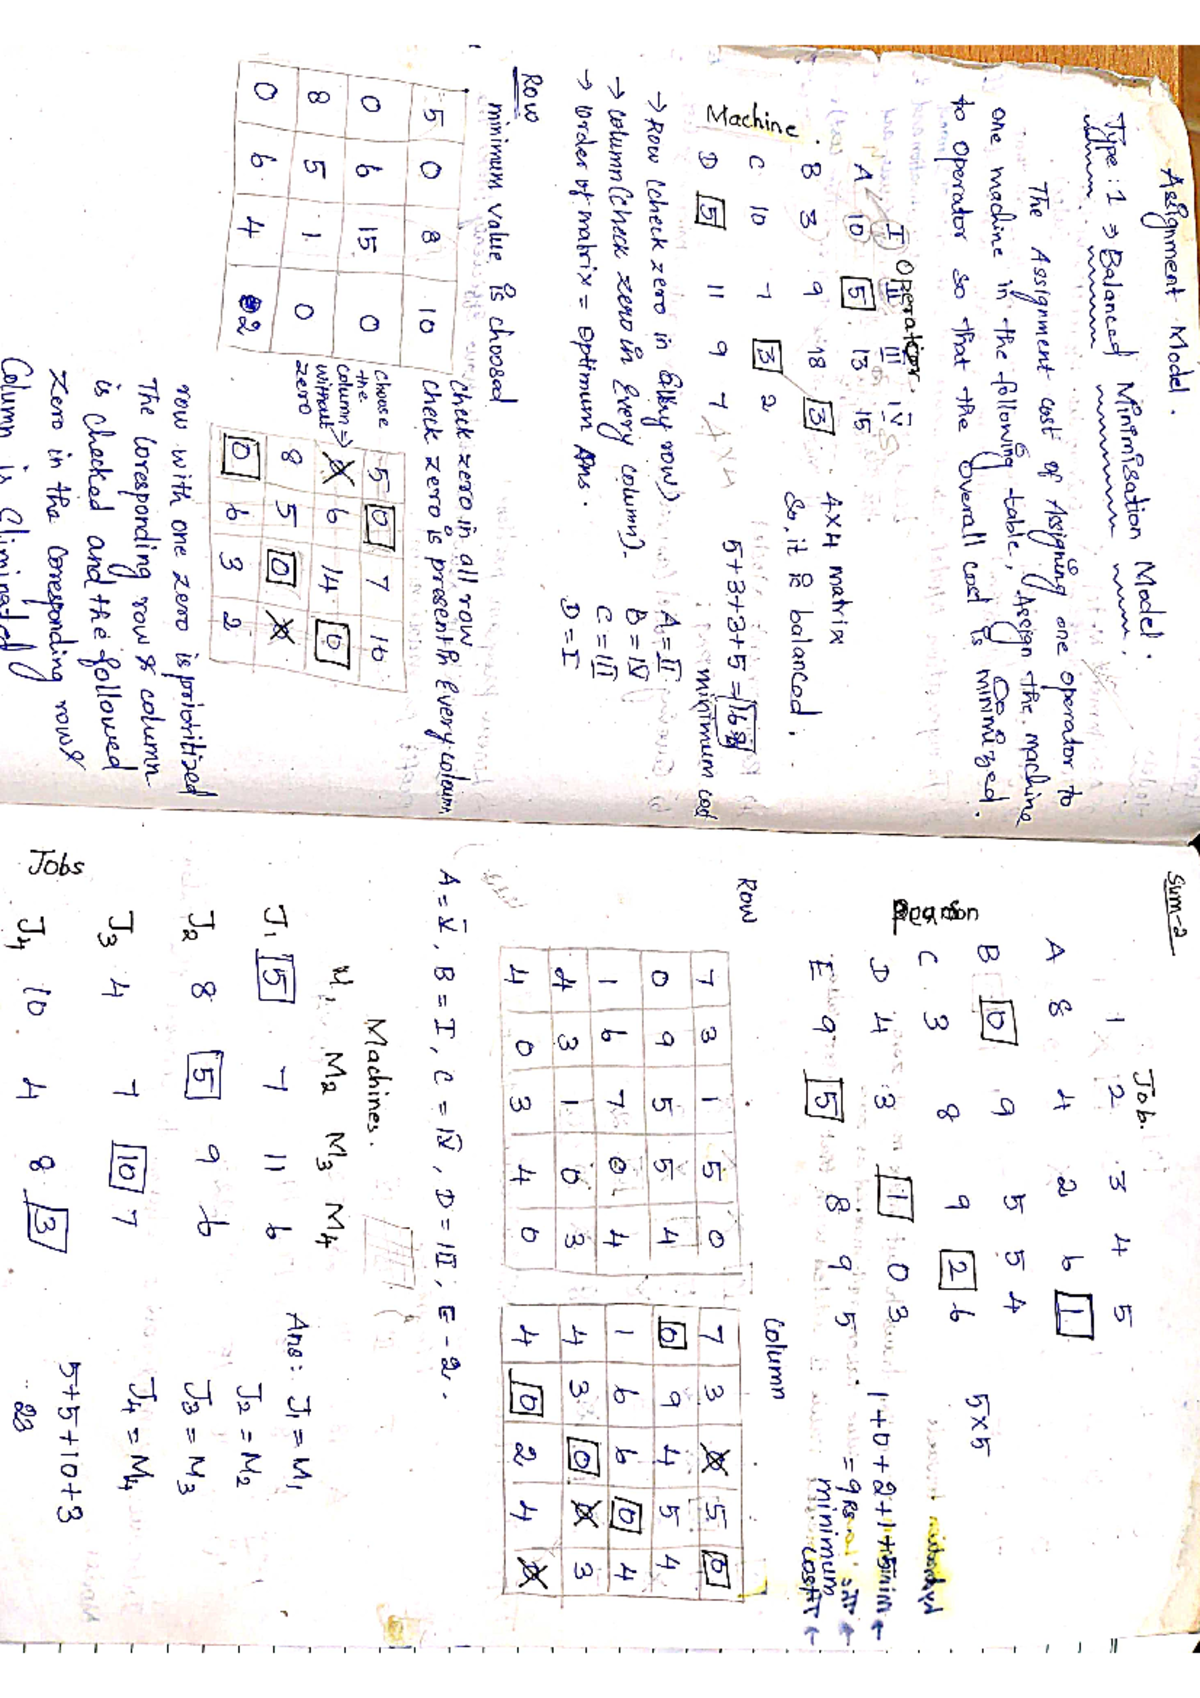 Assignment Model.
Type : 1 ⇒ Balanced Minimisation Model.
The Assignment cost of Assigning one operator to
one machine in the following table, Assign the machine
to operator so that the overall cost is minimized.
Operator.
I II III IV
A 10 5 13 15
B 3 9 18 3
C 10 7 3 2
D 5 11 9 7
Machine
4×4 matrix
So, it is balanced.
5+3+3+5 = 16
minimum cost
→ Row (check zero in every row).
→ Column (check zero in Every column).
→ Order of matrix = optimum Ans.
A = II
B = IV
C = III
D = I
Row
minimum value is choosed
check zero in all row
check zero is present in every column
5 0 8 10
0 6 15 0
8 5 1 0
0 6 4 2
choose
the
column ⇒
without
zero
5 0 7 10
0 6 14 0
8 5 0 0
0 6 3 2
row with one zero is prioritized
The Coresponding row & column
is checked and the followed
zero in the coresponding row &
Column is eliminated
Sum-2
Job.
1 2 3 4 5
A 8 4 2 6 1
B 0 9 5 5 4
C 3 8 9 2 6
D 4 3 1 0 3
E 9 5 8 9 5
Person
5×5
1+0+2+1+5
= 9 Rs
minimum
cost
Row
7 3 1 5 0
0 9 5 5 4
1 6 7 0 4
4 3 1 0 3
4 0 3 4 0
Column
7 3 0 5 0
0 9 4 5 4
1 6 6 0 4
4 3 0 0 3
4 0 2 4 0
A = V, B = I, C = IV, D = III, E - 2.
Machines.
M1 M2 M3 M4
J1 5 7 11 6
J2 8 5 9 6
J3 4 7 10 7
J4 10 4 8 3
Jobs
Ans: J1 = M1
J2 = M2
J3 = M3
J4 = M4
5+5+10+3
23